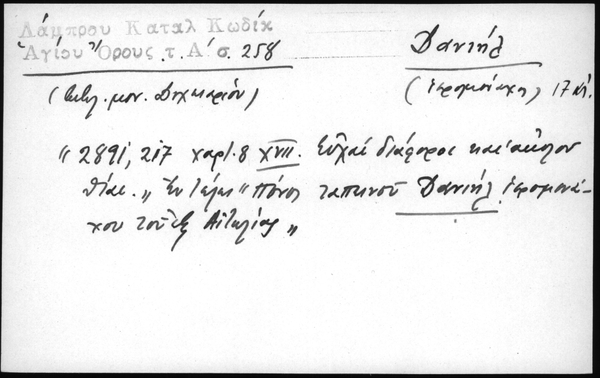 Λάμπρου Καταλ Κωδίκ
Ἁγίου Ὄρους τ. Α΄ σ. 258
Δανιήλ
(βιβλ. μον. Δοχειαρίου)
(ἱερομονάχου) 17 αἰ.
"2891, 217 χαρτ. 8 XVII. Εὐχαὶ διάφοροι καὶ ἀκολου
θίαι. „Ἐν τέλει" πόνος ταπεινοῦ Δανιήλ ἱερομονά-
χου τοῦ ἐξ Αἰτωλίας„